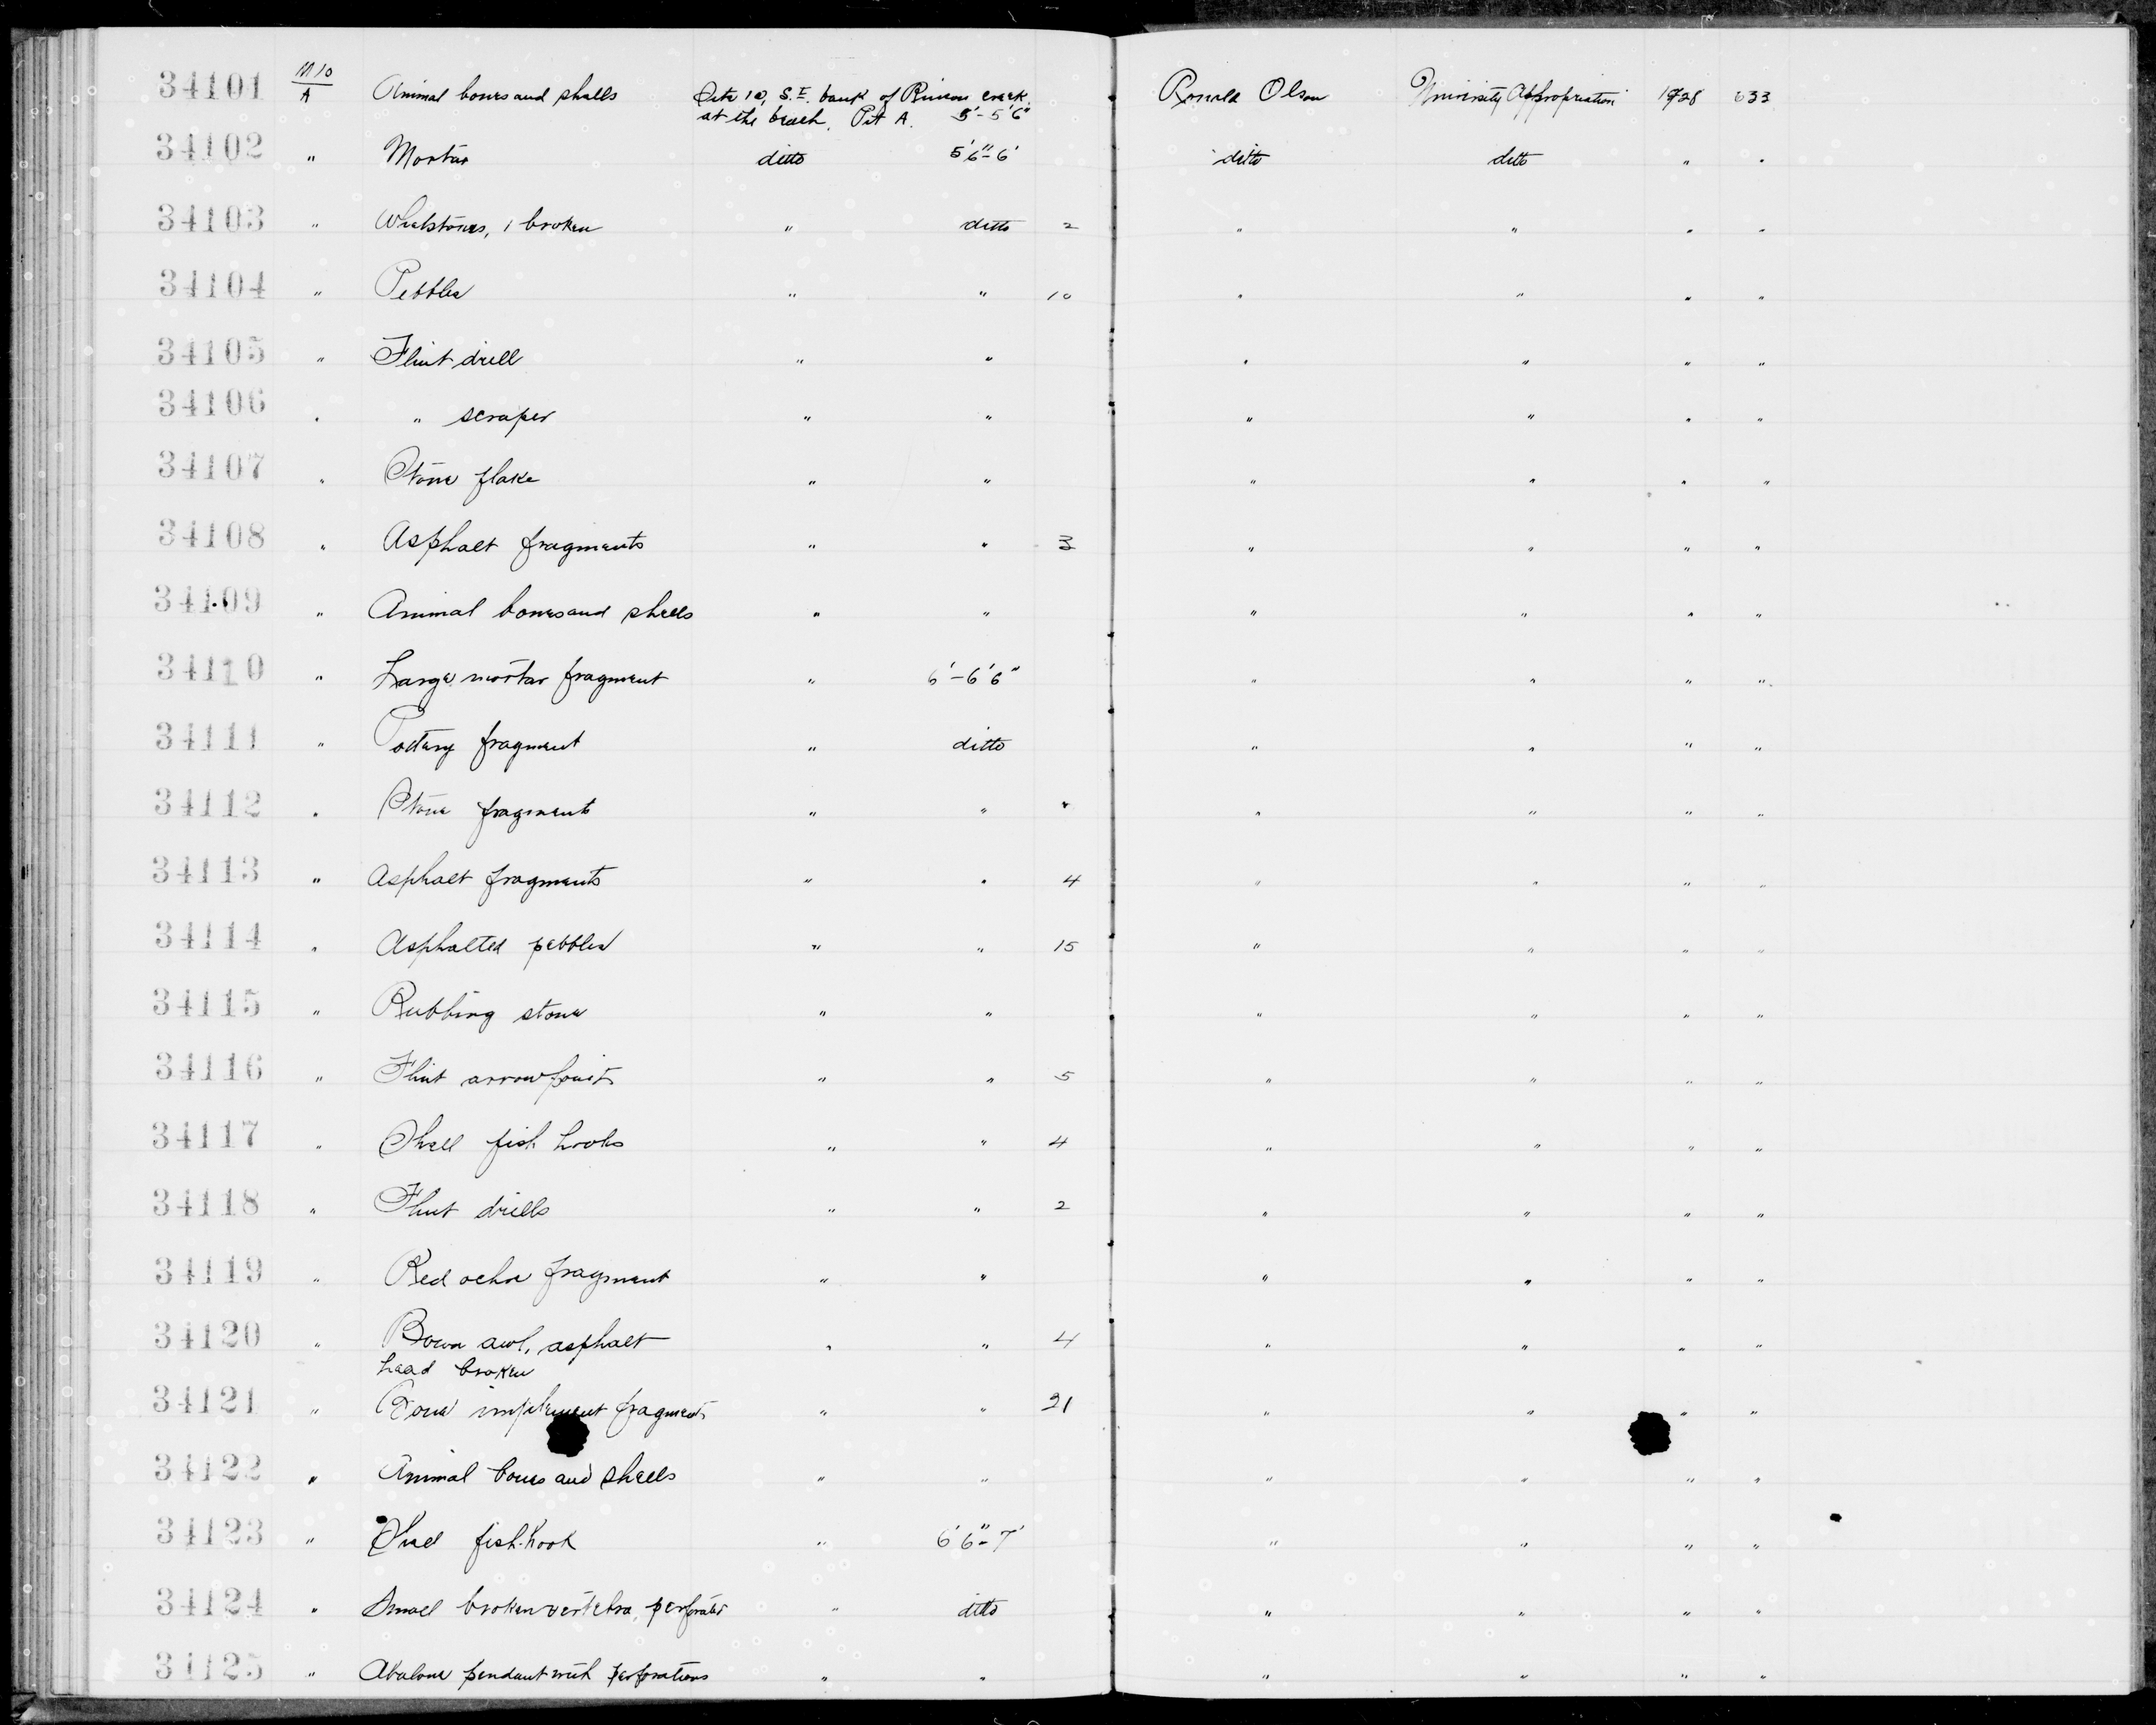 34101 M10/A Animal bones and shells Site 10, S.E. bank of Rincon creek Ronald Olson University Appropriation 1928 633
at the beach. Pit A. 5'-5'6"
34102 " Mortar ditto 5'6"-6' ditto ditto " "
34103 " Whetstones, 1 broken " ditto 2 " " " "
34104 " Pebbles " " 10 " " " "
34105 " Flint drill " " " " " "
34106 " " scraper " " " " " "
34107 " Stone flake " " " " " "
34108 " Asphalt fragments " " 3 " " " "
34109 " Animal bones and shells " " " " " "
34110 " Large mortar fragment " 6'-6'6" " " " "
34111 " Pottery fragment " ditto " " " "
34112 " Stone fragments " " " " " " "
34113 " Asphalt fragments " " 4 " " " "
34114 " Asphalted pebbles " " 15 " " " "
34115 " Rubbing stone " " " " " "
34116 " Flint arrowpoints " " 5 " " " "
34117 " Shell fish hooks " " 4 " " " "
34118 " Flint drills " " 2 " " " "
34119 " Red ochre fragment " " " " " "
34120 " Bone awl, asphalt " " 4 " " " "
head broken
34121 " Bone implement fragments " " 21 " " " "
34122 " Animal bones and shells " " " " " "
34123 " Shell fish-hook " 6'6"-7' " " " "
34124 " Small broken vertebra, perforated " ditto " " " "
34125 " Abalone pendant with perforations " " " " " "